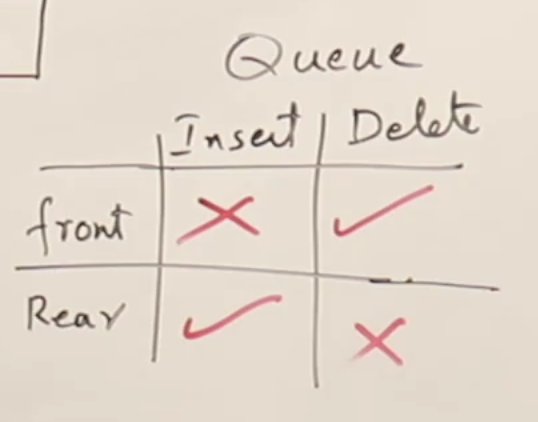 Queue
Insert Delete
front ✗ ✓
Rear ✓ ✗